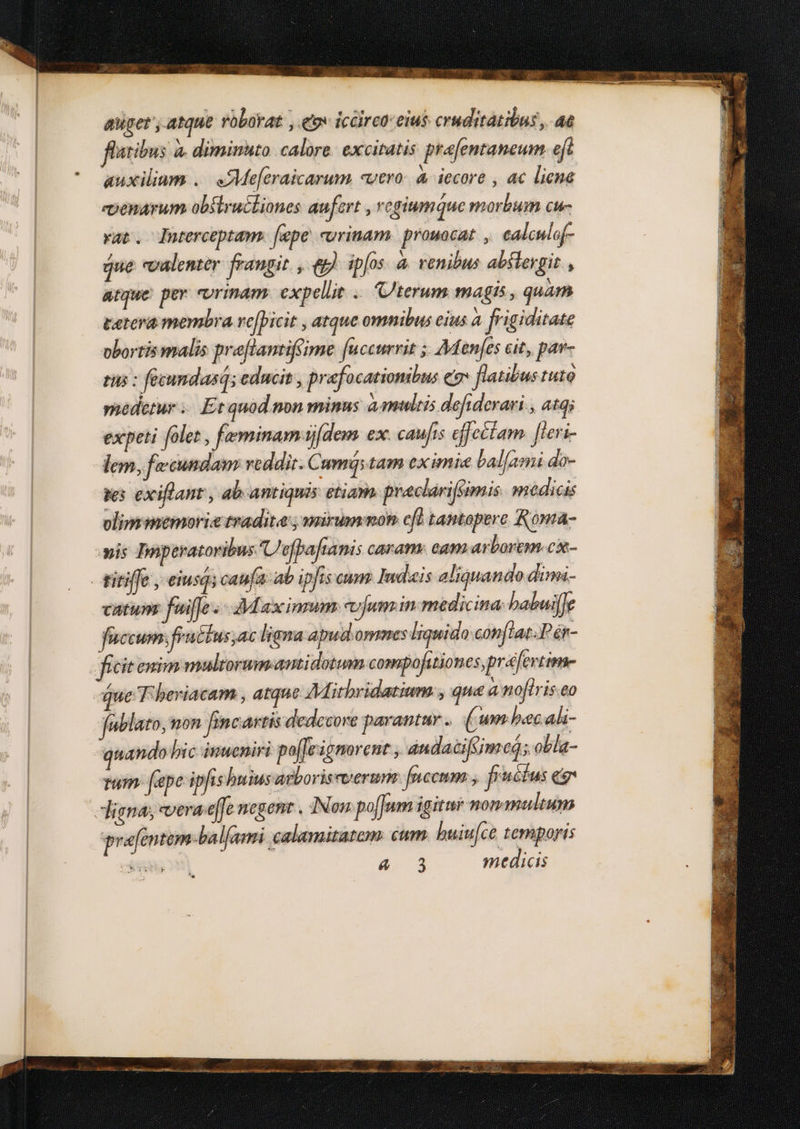 auget, atque roborat, & iccirco eius cruditatibus, ac
flatibus à diminuto calore excitatis præsentaneum est
auxilium. Meseraicarum vero à iecore, ac liene
venarum obstructiones aufert, regiumque morbum cu-
rat. Interceptam sæpe vrinam prouocat, calculos-
que valenter frangit, & ipsos à renibus abstergit,
atque per vrinam expellit. Vterum magis, quàm
cætera membra respicit, atque omnibus eius à frigiditate
obortis malis præstantissime succurrit; Menses cit, par-
tus: secundasq; educit, præfocationibus & flatibus tutò
medetur. Et quod non minus à multis desiderari, atq;
expeti solet, fœminam ijsdem ex causis effectam steri-
lem, fœcundam reddit. Cumq; tam eximiæ balsami do-
tes existant, ab antiquis etiam præclarissimis medicis
olim memoriæ traditæ, mirum non est tantopere Roma-
nis Imperatoribus Vespasianis caram eam arborem ex-
titisse, eiusq; causa ab ipsis cum Iudæis aliquando dimi-
catum fuisse. Maximum vsum in medicina habuisse
succum, fructus, ac ligna apud omnes liquido constat. Per-
ficit enim multorum antidotum compositiones, præfertim-
que Theriacam, atque Mitbridatium, quæ à nostris eo
sublato, non sine artis dedecore parantur. Cum hæc ali-
quando hic inueniri posse ignorent, audacissimeq; obla-
tum sæpe ipsis huius arboris verum succum, fructus &
ligna, vera esse negent. Non possum igitur non multum
præsentem balsami calamitatem cum huiusce temporis
a 3 medicis